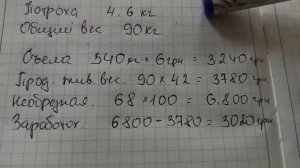 Потроха 4.6 кг
Общий вес 90кг
Съела 540кг × 6грн = 3.240 грн
Прод. жив. вес. 90 × 42 = 3780 грн
Необрезная. 68 × 100 = 6.800 грн
Заработок. 6800 - 3780 = 3020 грн